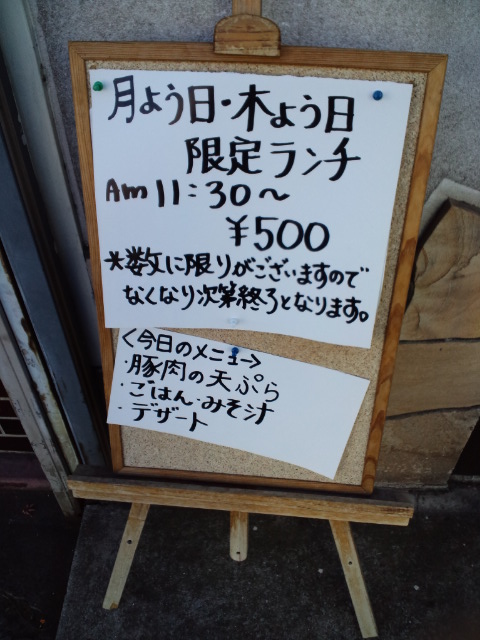 月よう日・木よう日
限定ランチ
Am 11:30〜
¥500
*数に限りがございますので
なくなり次第終了となります。
<今日のメニュー>
・豚肉の天ぷら
・ごはん・みそ汁
・デザート